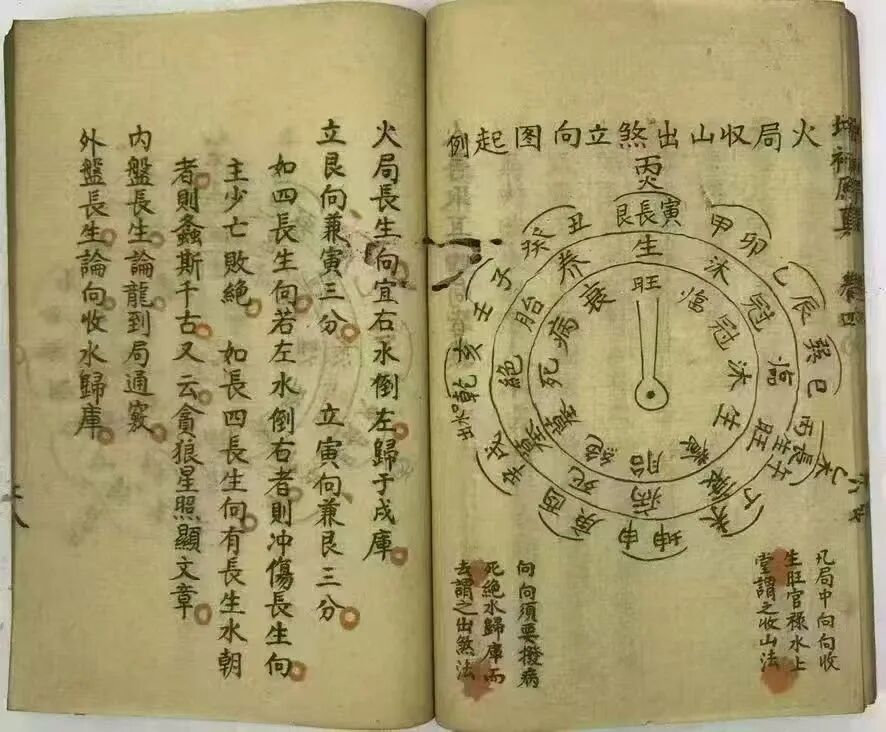 火局收山出煞立向图起例
丙火
艮長寅
甲卯
乙辰
巽巳
丙長生午
丁未
坤申
庚酉
辛戌
乾亥
壬子
癸丑
生
沐
冠
临
旺
衰
病
死
墓
絕
胎
养
旺
临
冠
沐
生
養
胎
絕
墓
死
病
衰
凡局中向向收
生旺官祿水上
堂謂之收山法
向向須要撥病
死絕水歸庫而
去謂之出煞法
火局長生向宜右水倒左歸于戌庫
立艮向兼寅三分 立寅向兼艮三分
如四長生向若左水倒右者則冲傷長生向
主少亡敗絕 如長四長生向有長生水朝
者則螽斯千古又云貪狼星照顯文章
内盤長生論龍到局通竅
外盤長生論向收水歸庫